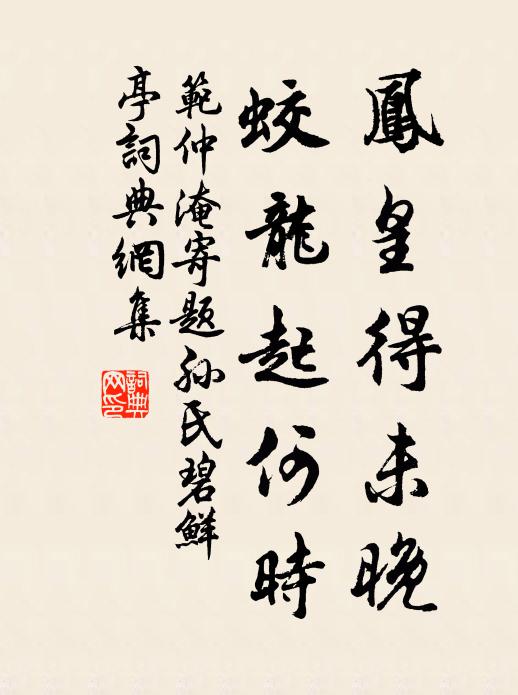 鳳皇得未晚
蛟龍起何時
範仲淹寄題孙氏碧鮮
亭詞典網集
詞典
网印